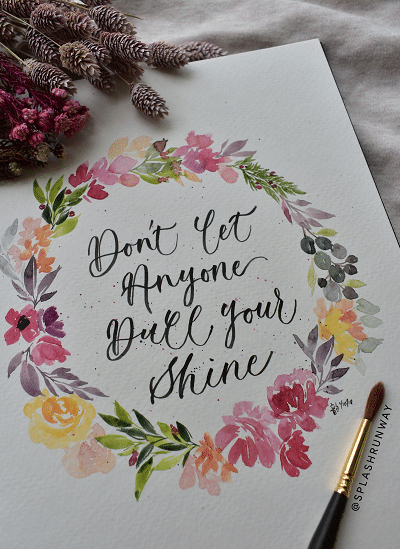 Don't let
Anyone
Dull your
Shine
@SPLASHRUNWAY